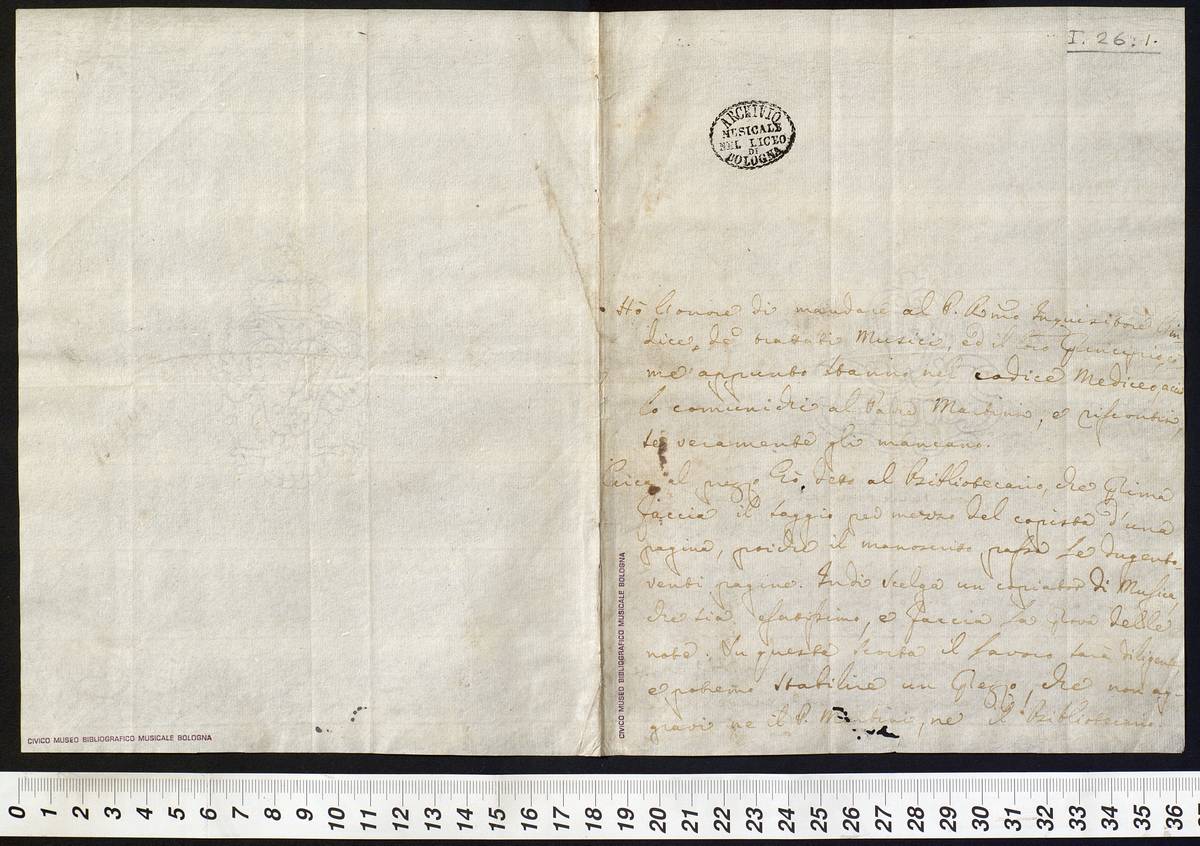 I. 26. 1.
ARCHIVIO
MUSICALE
NEL LICEO
DI
BOLOGNA
Hò l'onore di mandare al P. Rmo Inquisitore l'in
dice de trattati Musici, ed il co
me appunto stanno nel codice Mediceo, acciò
lo comunichi al Padre Martini, e riscontri,
se veramente gli mancano.
Circa al prezzo hò detto al Bibliotecario, che prima
faccia il saggio per mezzo del copista d'una
pagina, poiche il manoscritto passa le dugento-
venti pagine. Indi scelga un copiator di Musica,
che sia esattissimo, e faccia la prova delle
note. In questa scorta il lavoro sarà diligente
e potremo stabilire un prezzo, che non ag-
gravi ne il P. Martini, ne il Bibliotecario.
CIVICO MUSEO BIBLIOGRAFICO MUSICALE BOLOGNA
CIVICO MUSEO BIBLIOGRAFICO MUSICALE BOLOGNA
0 1 2 3 4 5 6 7 8 9 10 11 12 13 14 15 16 17 18 19 20 21 22 23 24 25 26 27 28 29 30 31 32 33 34 35 36